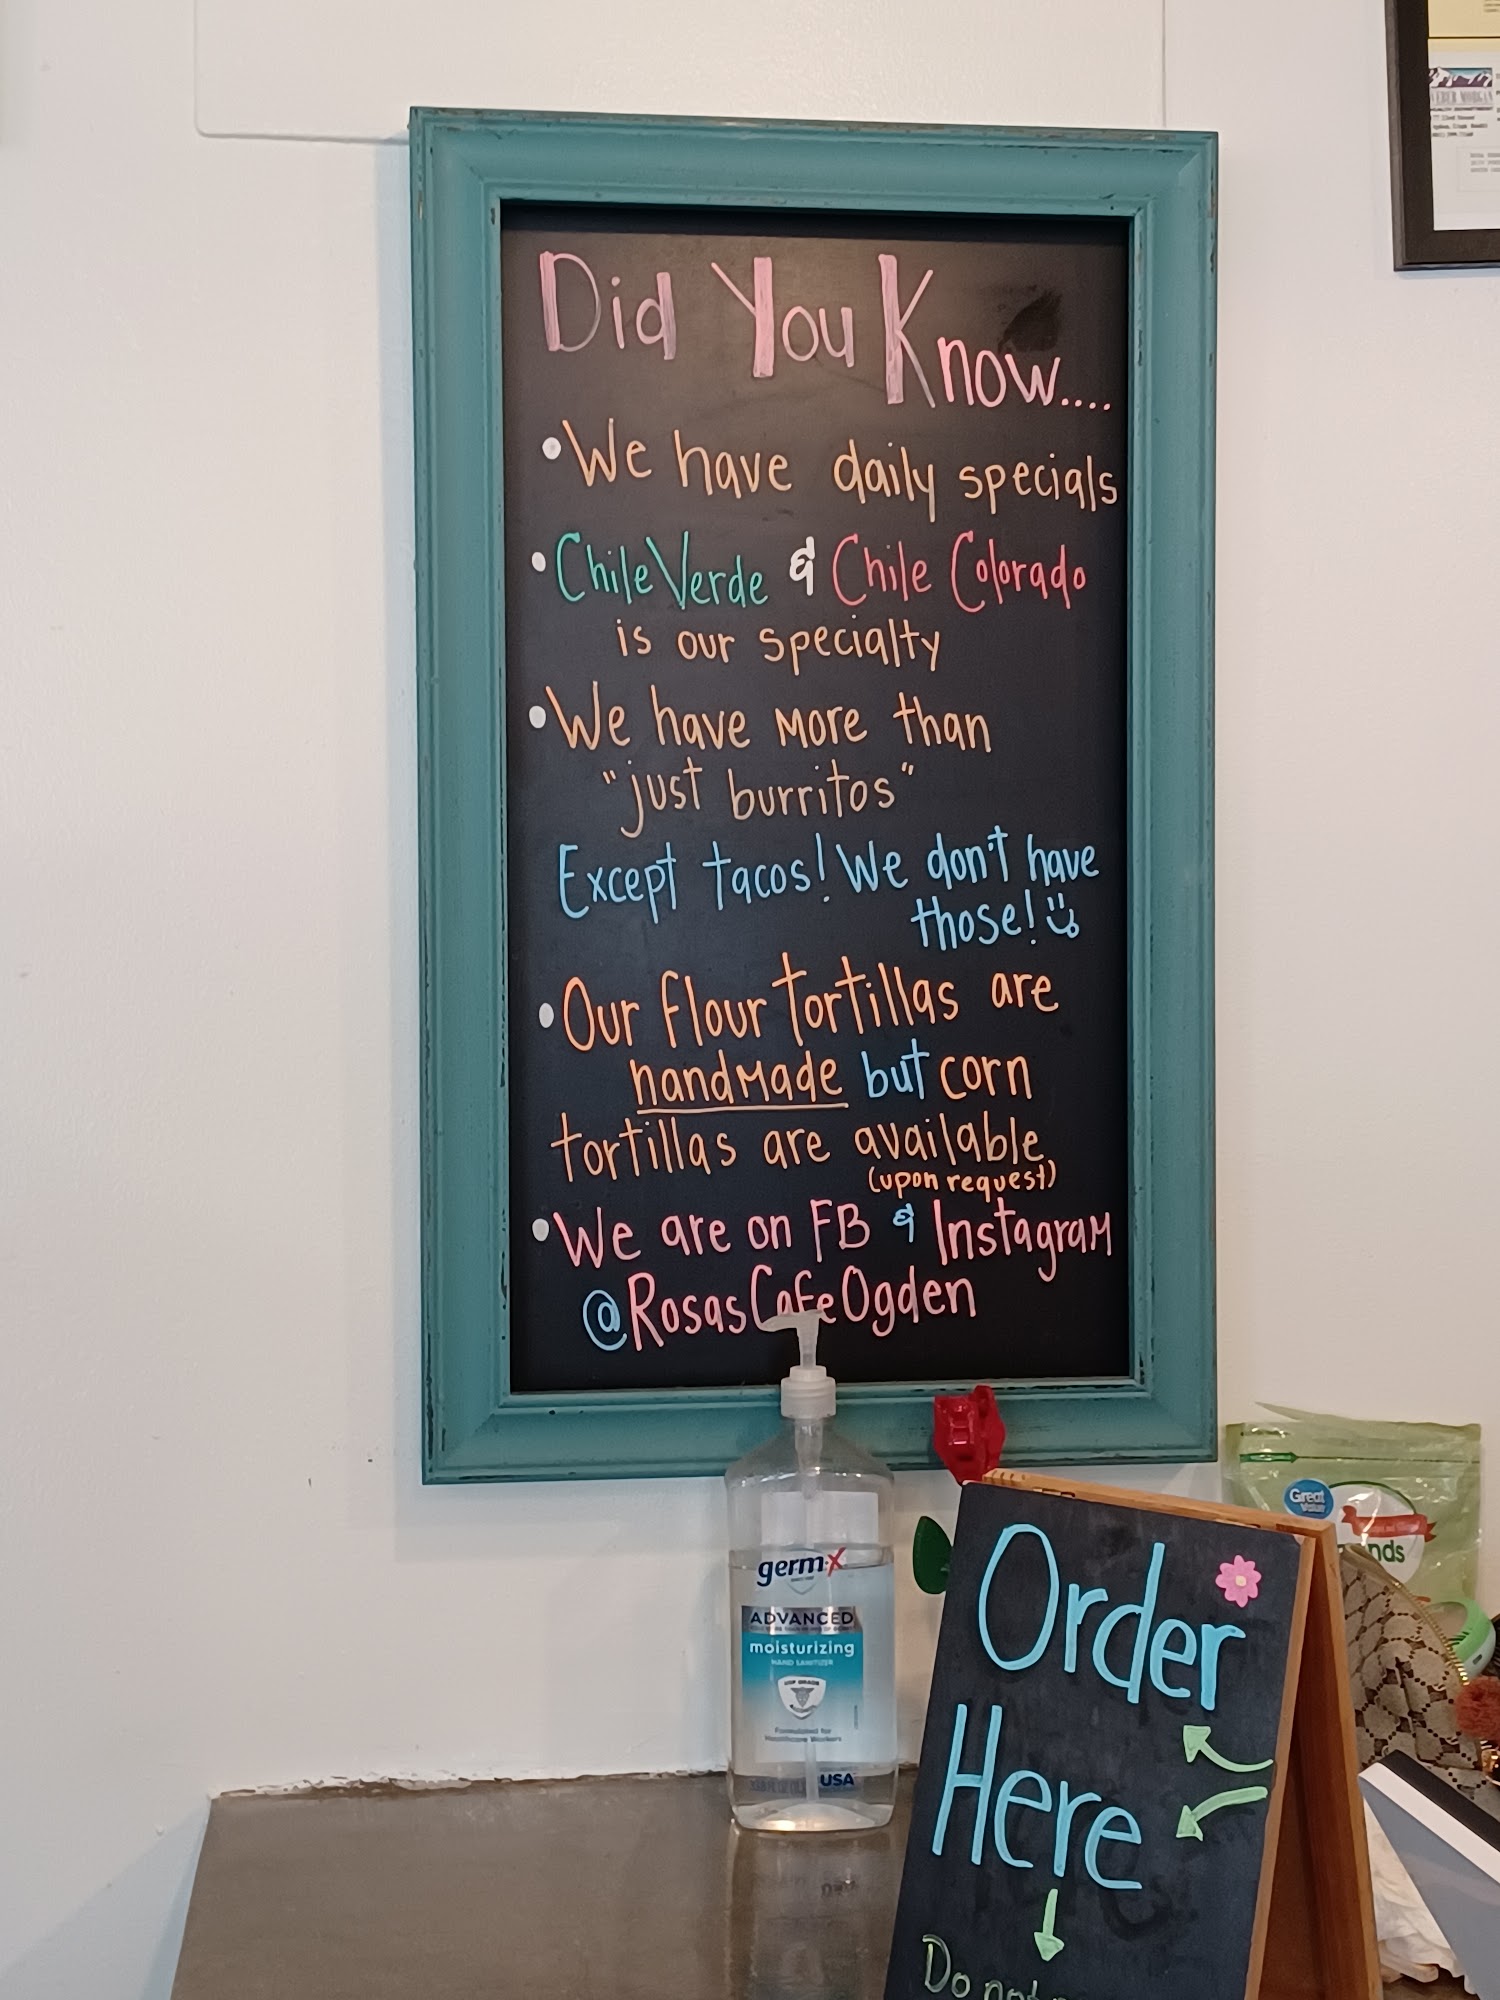 Did You Know....
•We have daily specials
•Chile Verde & Chile Colorado
is our specialty
•We have more than
"just burritos"
Except tacos! We don't have
those!
•Our flour tortillas are
handmade but corn
tortillas are available
(upon request)
•We are on FB & Instagram
@RosasCafeOgden
germ-x
ADVANCED
moisturizing
HAND SANITIZER
Formulated for
Healthcare Workers
USA
Great
Value
Order
Here
Do not